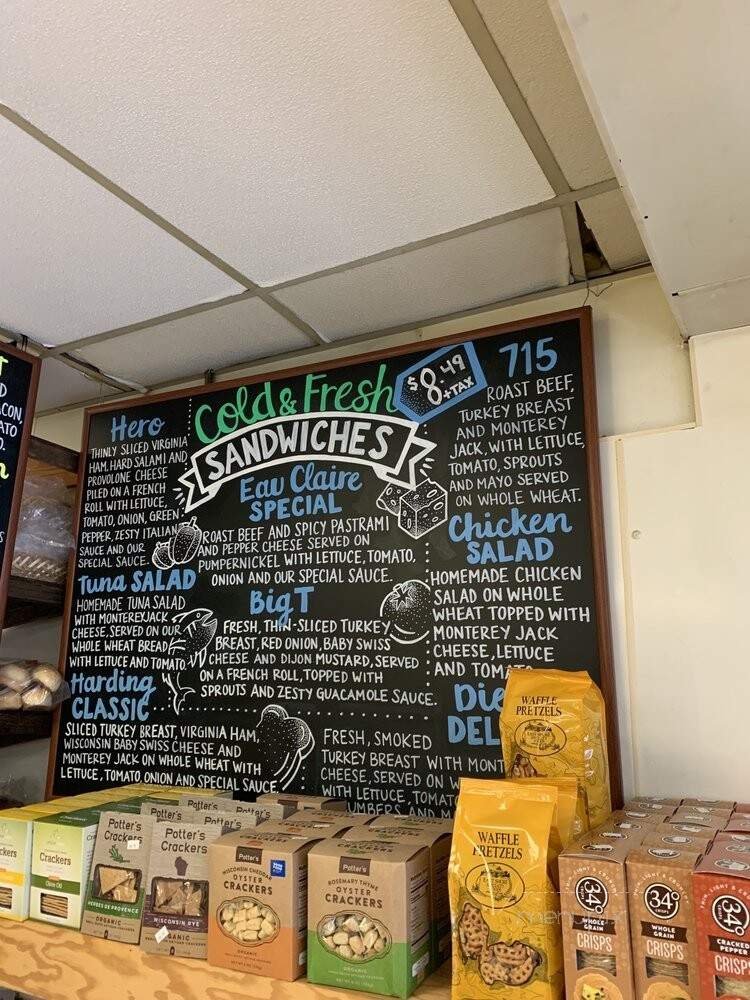 Cold & Fresh
SANDWICHES
$8.49
+TAX
Hero
THINLY SLICED VIRGINIA
HAM, HARD SALAMI AND
PROVOLONE CHEESE
PILED ON A FRENCH
ROLL WITH LETTUCE,
TOMATO, ONION, GREEN
PEPPER, ZESTY ITALIAN
SAUCE AND OUR
SPECIAL SAUCE.
Tuna SALAD
HOMEMADE TUNA SALAD
WITH MONTEREY JACK
CHEESE, SERVED ON OUR
WHOLE WHEAT BREAD
WITH LETTUCE AND TOMATO.
Harding
CLASSIC
SLICED TURKEY BREAST, VIRGINIA HAM,
WISCONSIN BABY SWISS CHEESE AND
MONTEREY JACK ON WHOLE WHEAT WITH
LETTUCE, TOMATO, ONION AND SPECIAL SAUCE.
Eau Claire
SPECIAL
ROAST BEEF AND SPICY PASTRAMI
AND PEPPER CHEESE SERVED ON
PUMPERNICKEL WITH LETTUCE, TOMATO,
ONION AND OUR SPECIAL SAUCE.
Big T
FRESH, THIN-SLICED TURKEY
BREAST, RED ONION, BABY SWISS
CHEESE AND DIJON MUSTARD, SERVED
ON A FRENCH ROLL, TOPPED WITH
SPROUTS AND ZESTY GUACAMOLE SAUCE.
715
ROAST BEEF,
TURKEY BREAST
AND MONTEREY
JACK, WITH LETTUCE,
TOMATO, SPROUTS
AND MAYO SERVED
ON WHOLE WHEAT.
Chicken
SALAD
HOMEMADE CHICKEN
SALAD ON WHOLE
WHEAT TOPPED WITH
MONTEREY JACK
CHEESE, LETTUCE
AND TOMATO
Die
DEL
FRESH, SMOKED
TURKEY BREAST WITH MONT
CHEESE, SERVED ON W
WITH LETTUCE, TOMATO
UMBERS AND M
Crackers
Olive Oil
Potter's
Crackers
HERBES DE PROVENCE
ORGANIC
Potter's
Crackers
WISCONSIN RYE
ORGANIC
Potter's
WISCONSIN CHEDDAR
OYSTER
CRACKERS
Potter's
ROSEMARY THYME
OYSTER
CRACKERS
ORGANIC
WAFFLE
PRETZELS
WAFFLE
PRETZELS
34°
WHOLE
GRAIN
CRISPS
34°
CRISPS
WHOLE
GRAIN
CRISPS
34°
CRACKED
PEPPER
CRISPS